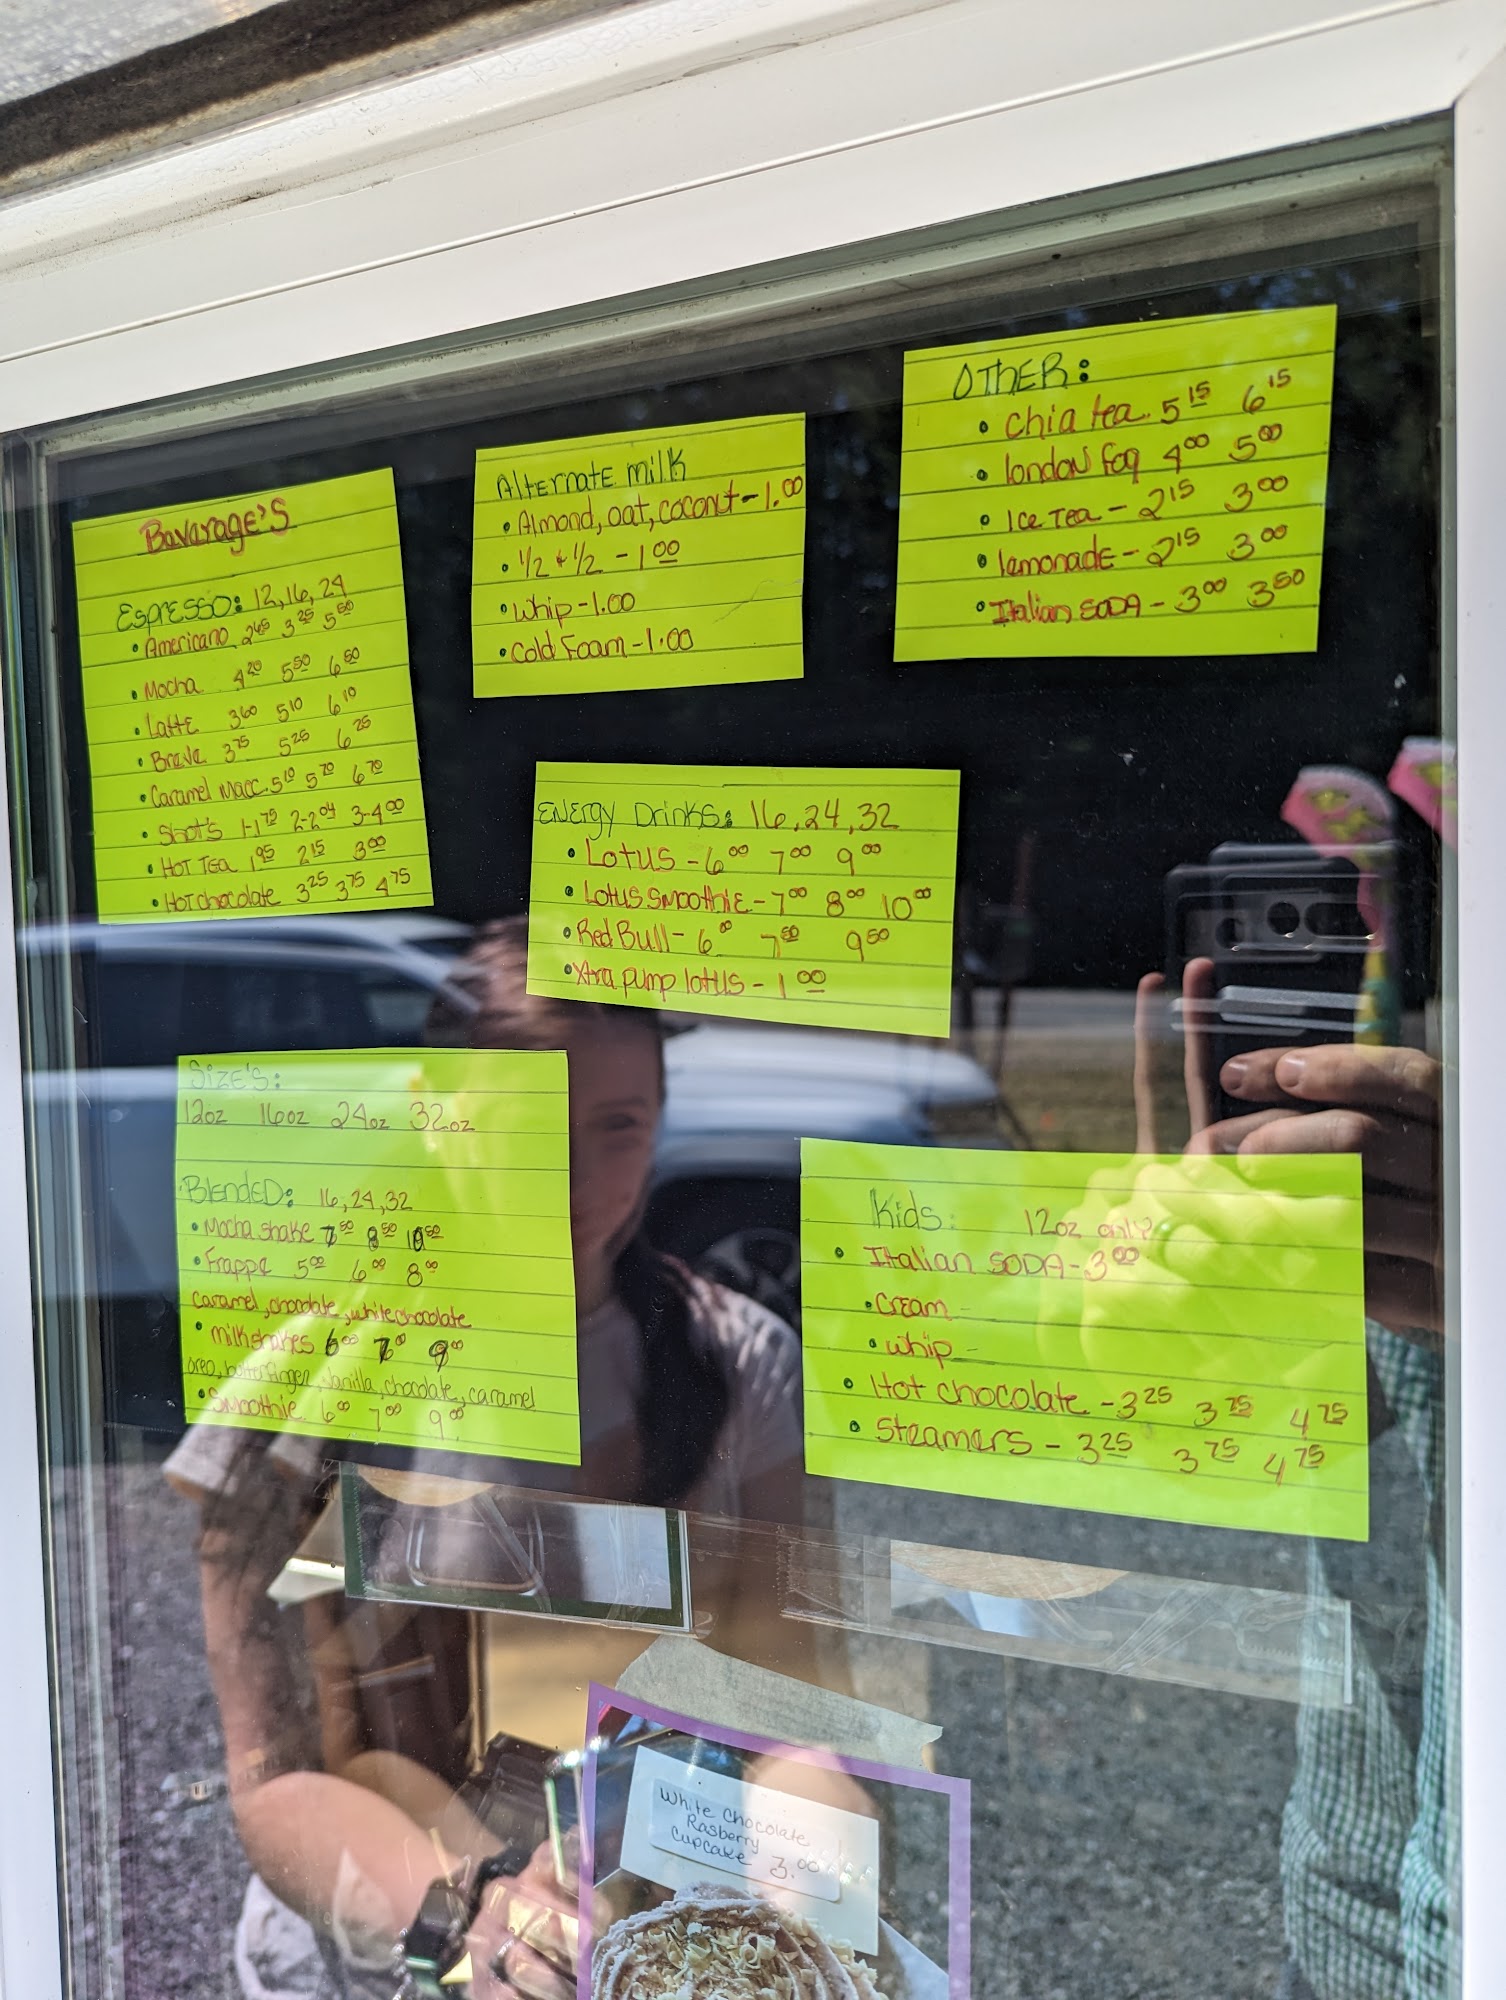 Bavarage's
Espresso: 12, 16, 24
• Americano 265 325 550
• Mocha 420 550 650
• Latte 360 510 610
• Breve 375 525 625
• Caramel Macc. 510 570 670
• Shot's 1-175 2-204 3-400
• Hot Tea 195 215 300
• Hot chocolate 325 375 475
Alternate milk
• Almond, oat, coconut - 1.00
• 1/2 & 1/2 - 100
• whip - 1.00
• Cold Foam - 1.00
OTHER:
• Chia tea 515 615
• london fog 400 500
• Ice Tea - 215 300
• lemonade - 215 300
• Italian SODA - 300 350
Energy Drinks: 16, 24, 32
• Lotus - 600 700 900
• Lotus Smoothie - 700 800 1000
• Red Bull - 600 750 950
• Xtra pump lotus - 100
Size's:
12oz 16oz 24oz 32oz
Blended: 16, 24, 32
• Mocha shake 750 850 1050
• Frappe 500 600 800
caramel, chocolate, white chocolate
• milkshakes 600 700 900
oreo, butterfinger, vanilla, chocolate, caramel
• Smoothie 600 700 900
Kids: 12oz only
• Italian SODA - 300
• Cream -
• whip -
• Hot chocolate - 325 375 475
• Steamers - 325 375 475
White Chocolate
Rasberry
Cupcake 3.00